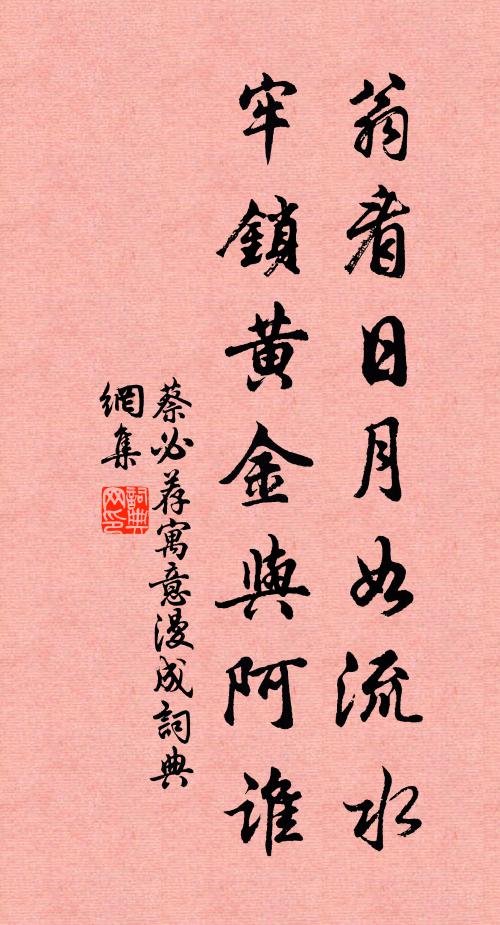 翁看日月如流水
牢鎖黃金與阿誰
蔡必荐寓意漫成詞典
網集
詞典
网印